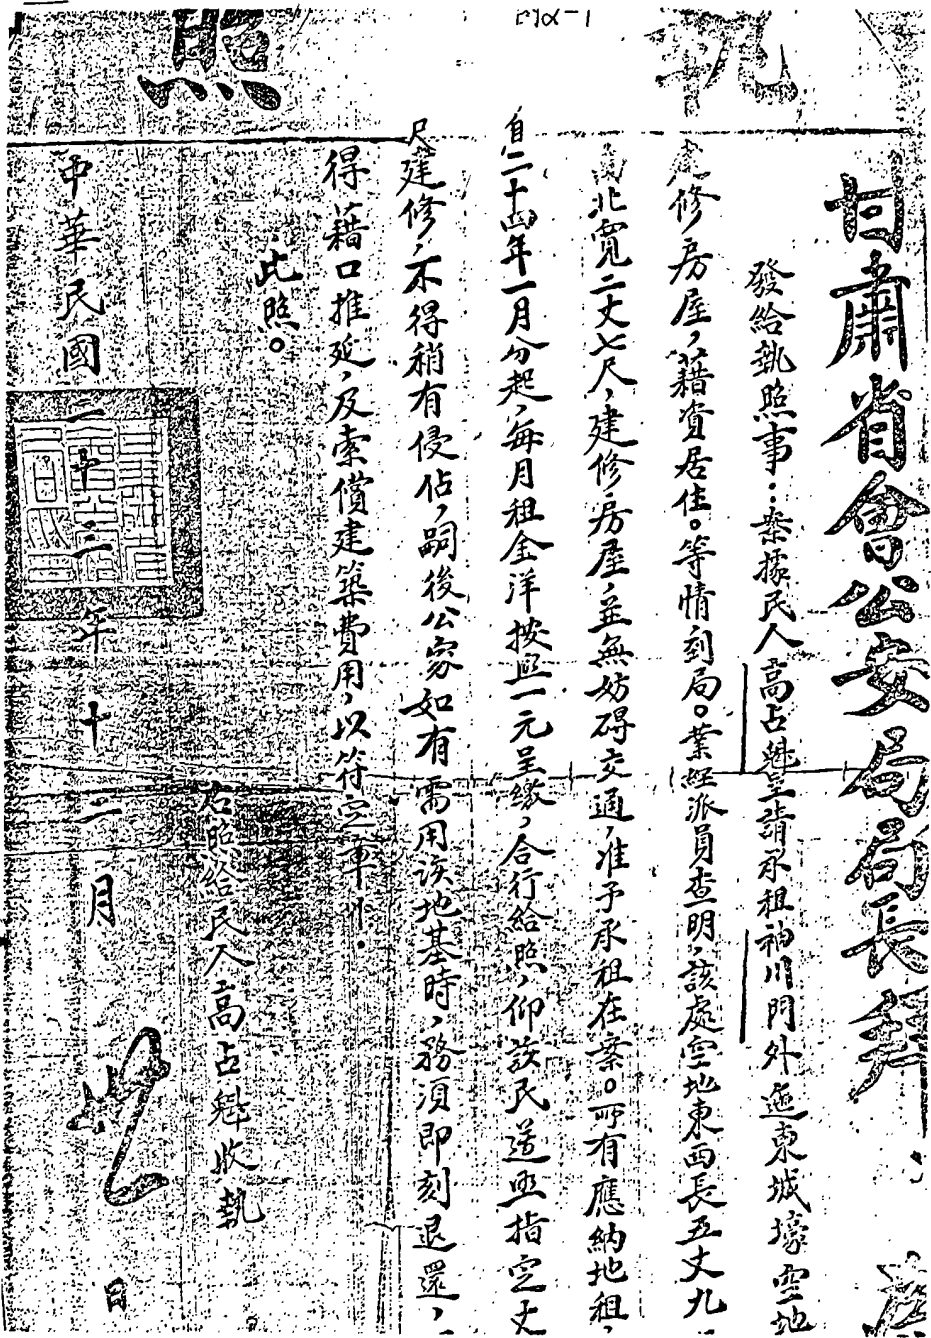 執照
甘肅省會公安局局長拜
發給執照事：案據民人高占魁呈請承租袖川門外迤東城壕空地
處修房屋，藉資居住。等情到局。業經派員查明，該處空地東西長五丈九
北寬二丈七尺，建修房屋，並無妨碍交通，准予承租在案。所有應納地租，
自二十四年一月分起，每月租金洋按照一元呈繳，合行給照，仰該民遵照指定丈
尺建修，不得稍有侵佔，嗣後公家如有需用該地基時，務須即刻退還，
得藉口推延，及索償建築費用，以符定章
此照。
右照給民人高占魁收執
中華民國二十三年十二月 日